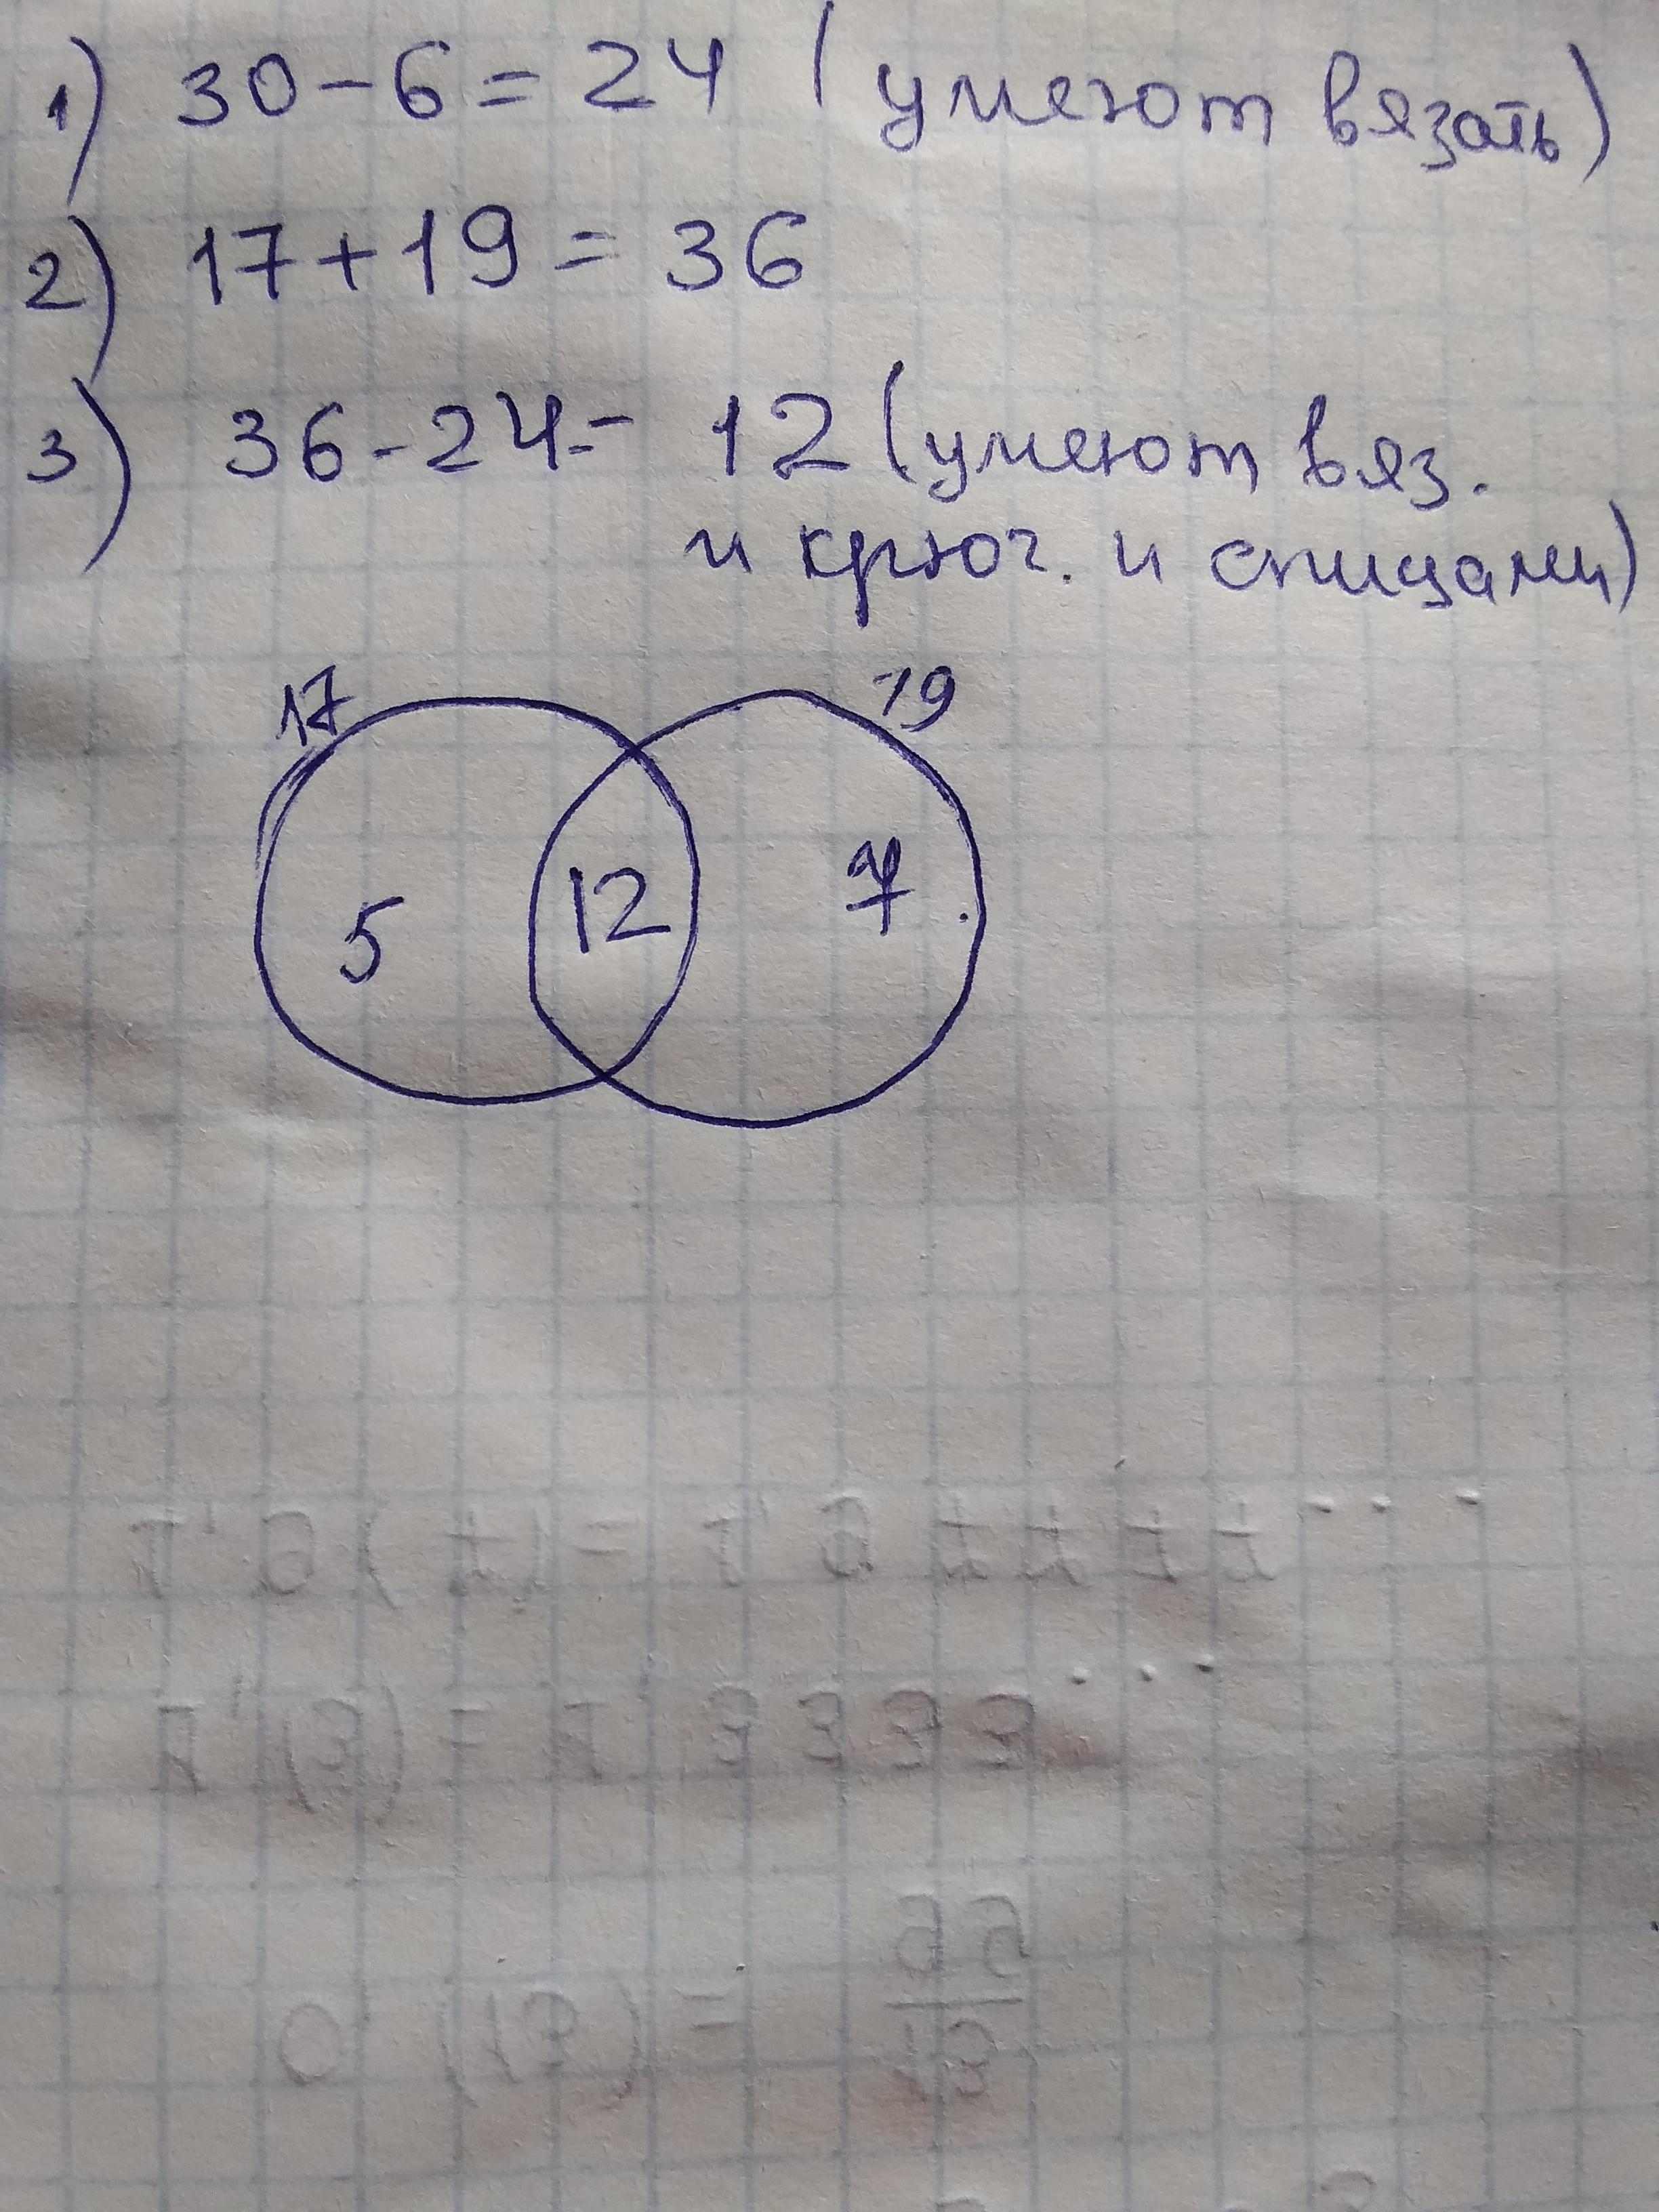 1) 30-6=24 (умеют вязать)
2) 17+19=36
3) 36-24= 12 (умеют вяз.
и крюч. и спицами)
17 19
5 12 7